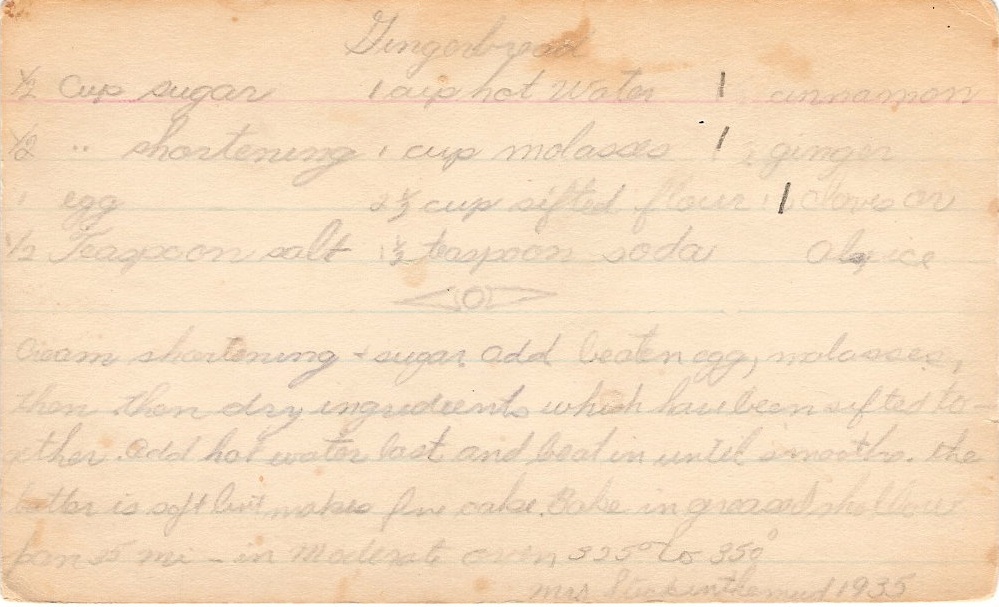 Gingerbread
½ Cup sugar 1 cup hot Water 1 cinnamon
½ " shortening 1 cup molasses 1 ginger
1 egg 2½ cup sifted flour 1 cloves or
½ Teaspoon salt 1½ teaspoon soda Alspice
Cream shortening + sugar add beaten egg, molasses,
then then dry ingredients which have been sifted to-
gether. Add hot water last and beat in until smooth. The
batter is soft but makes fine cake. Bake in greased shallow
pan 35 mi - in Moderate oven 325° to 350°
Mrs 1935